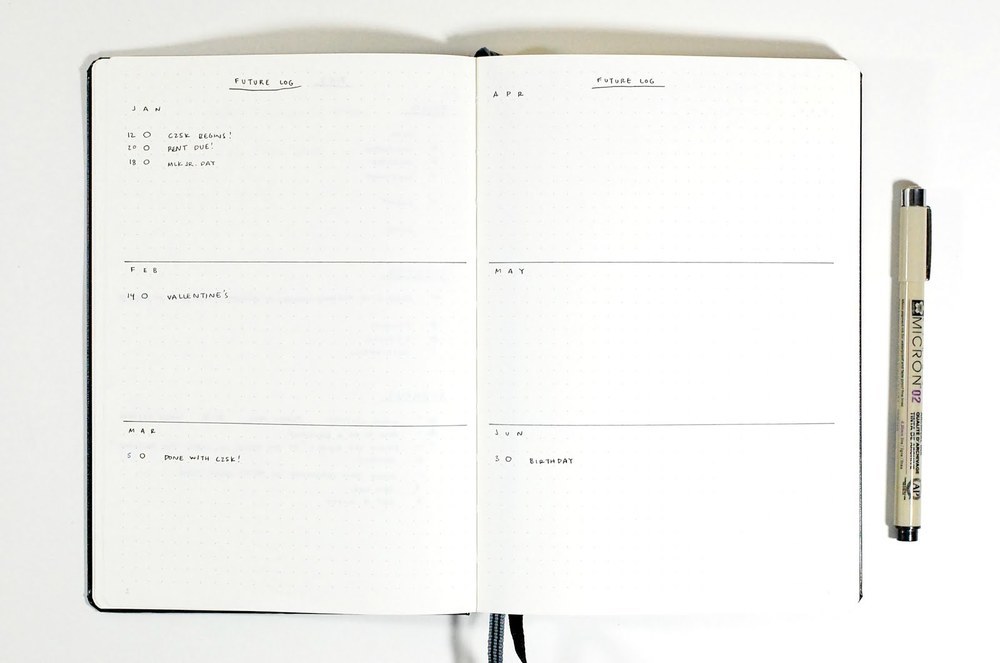 FUTURE LOG
JAN
12 O C25K BEGINS!
20 O RENT DUE!
18 O MLK JR. DAY
FEB
14 O VALLENTINE'S
MAR
5 O DONE WITH C25K!
FUTURE LOG
APR
MAY
JUN
3 O BIRTHDAY
MICRON 02
QUALITÉ D'ARCHIVAGE
TINTA DE ARCHIVO
AP